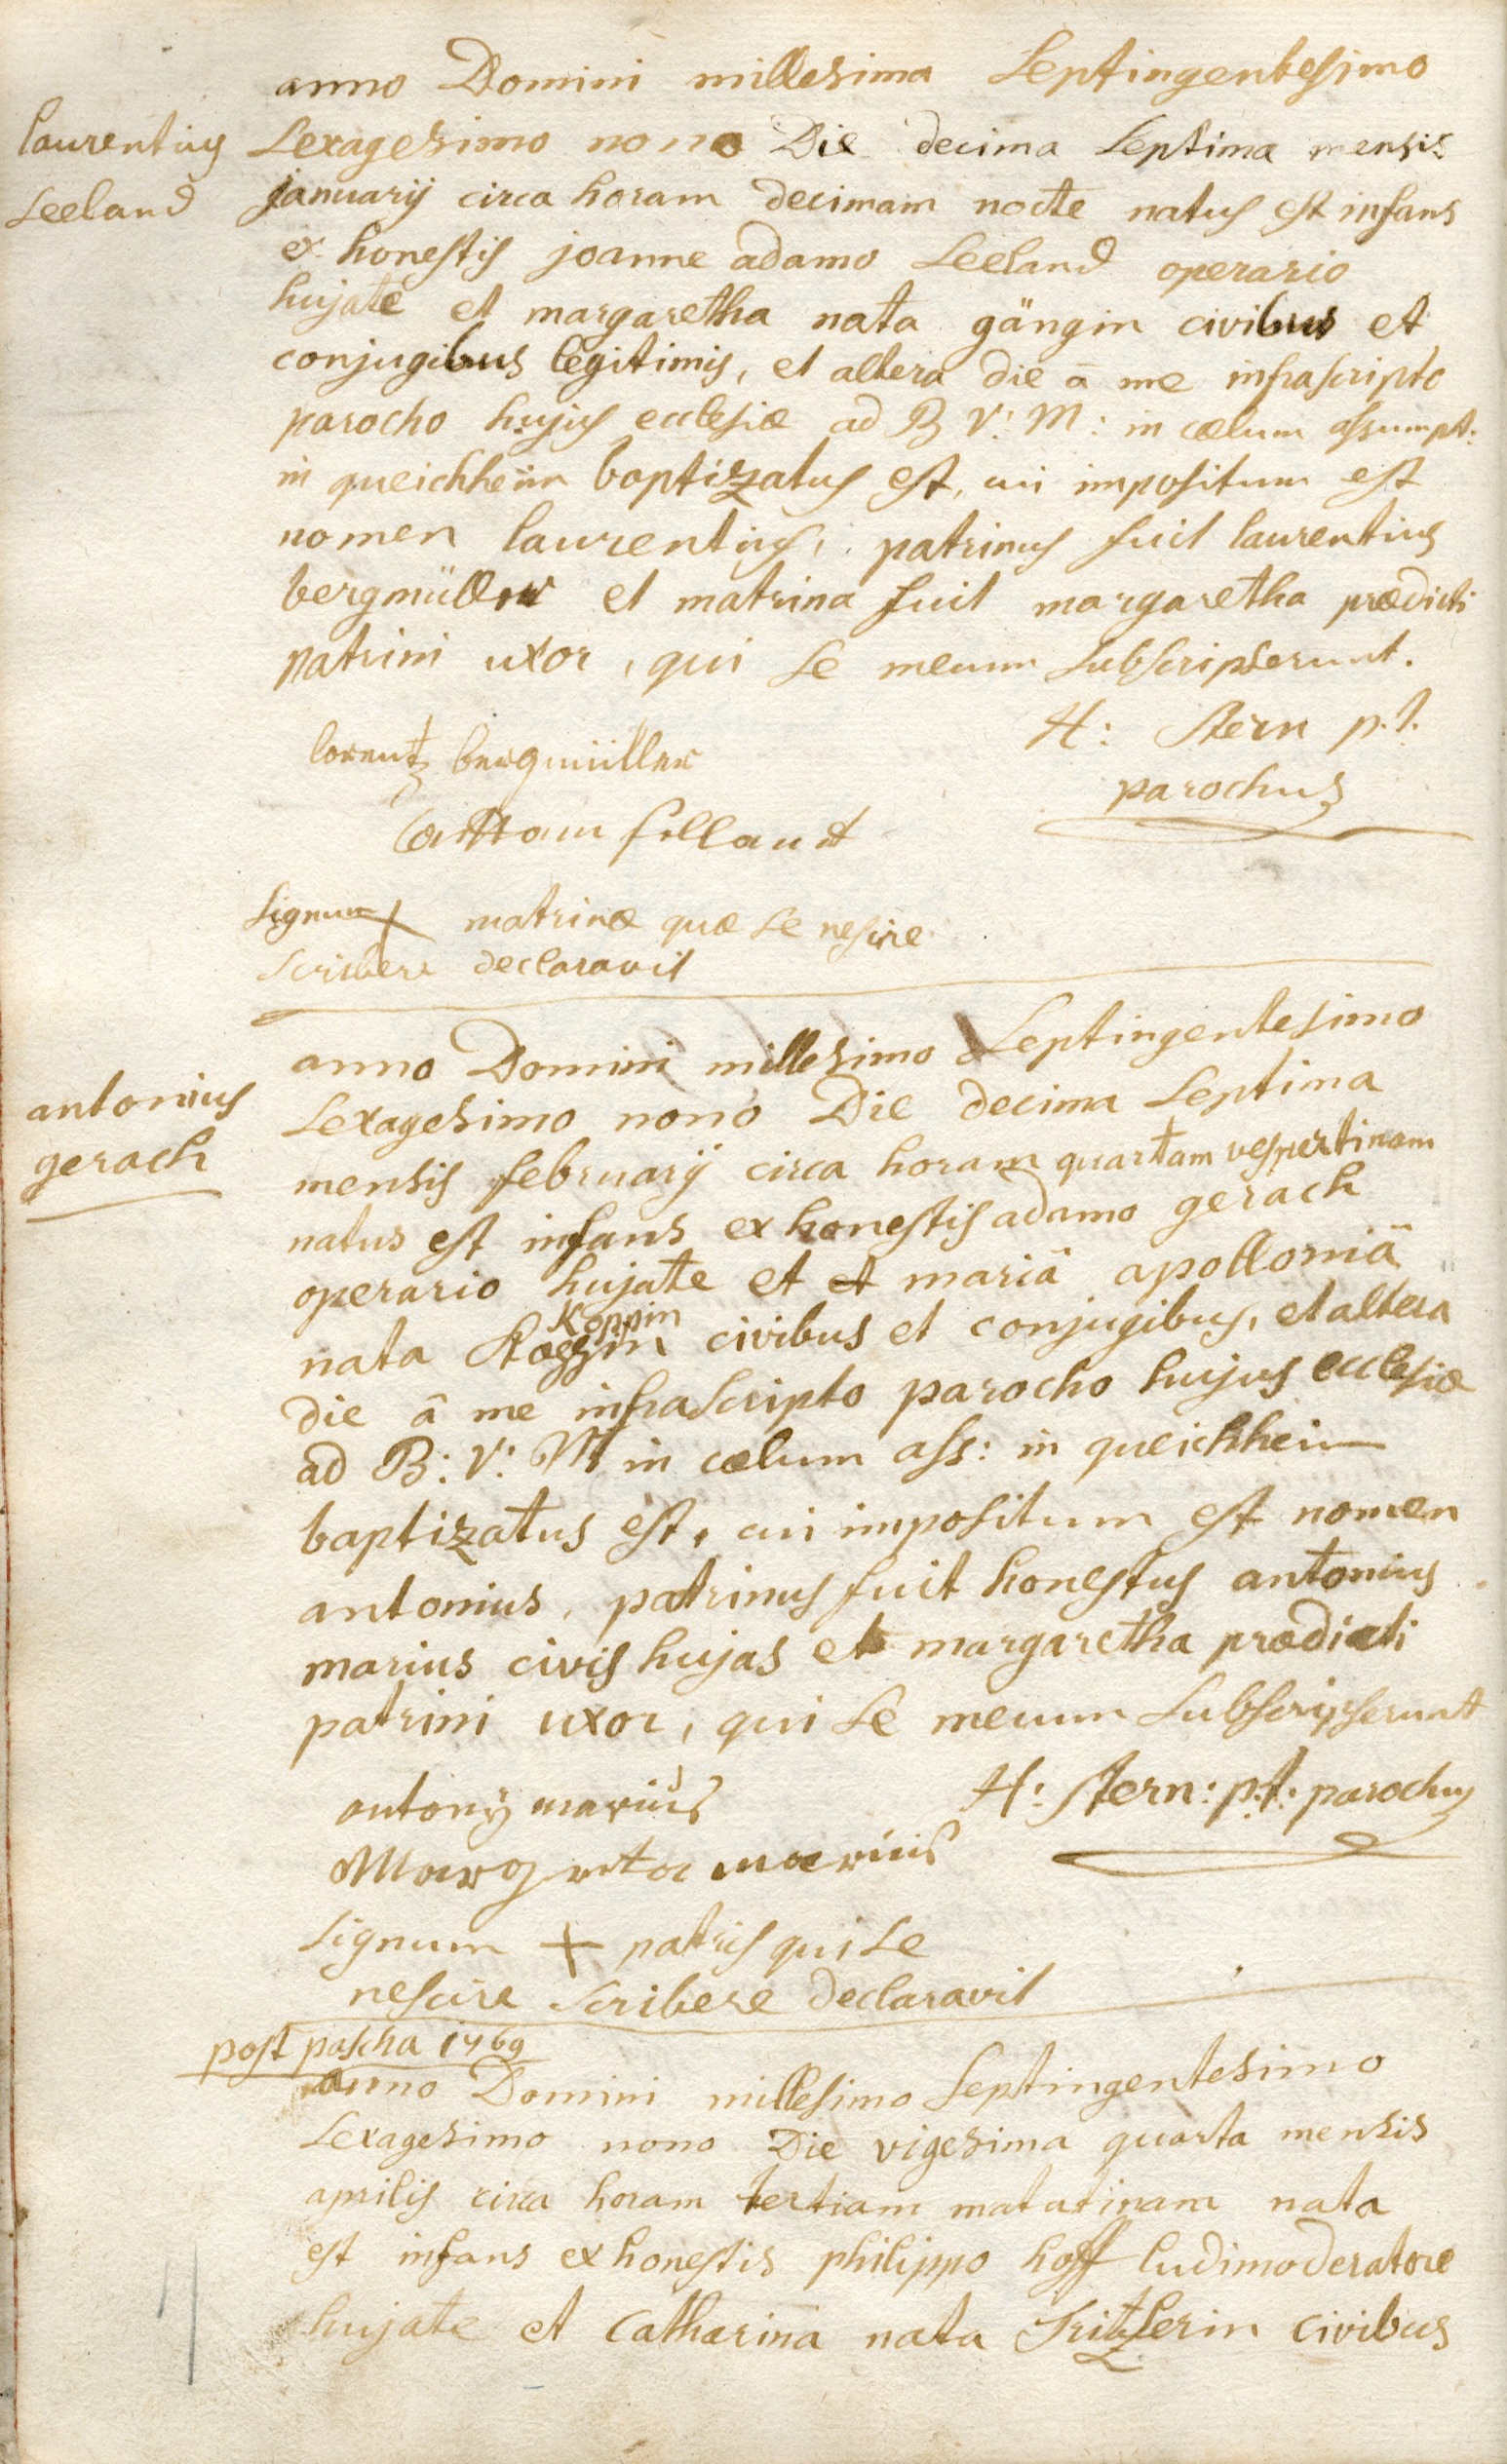 anno Domini millesima Septingentesimo
laurentius
Seeland
Sexagesimo nono Die decima Septima mensis
januarij circa horam decimam nocte natus est infans
ex honestis joanne adamo Seeland operario
hujate et margaretha nata gängin civibus et
conjugibus legitimis, et altera die â me infrascripto
parocho hujus ecclesiæ ad B V: M: in cœlum assumpt:
in queichheim baptizatus est, cui impositum est
nomen laurentius, patrinus fuit laurentius
bergmüller et matrina fuit margaretha prædicti
patrini uxor, qui se mecum subscripserunt.
H: Stern p.t.
parochus
lorentz bergmüller
Attam sellant
Signum + matrinæ quæ se nescire
scribere declaravit
antonius
gerach
anno Domini millesimo Septingentesimo
Sexagesimo nono Die decima Septima
mensis februarij circa horam quartam vespertinam
natus est infans ex honestis adamo gerach
operario hujate et et mariâ apolloniâ
Koppin
nata civibus et conjugibus, et altera
die â me infrascripto parocho hujus ecclesiæ
ad B: V: M in cœlum ass: in queichheim
baptizatus est, cui impositum est nomen
antonius, patrinus fuit honestus antonius
marius civis hujas et margaretha prædicti
patrini uxor, qui se mecum subscripserunt
H: Stern: p:t: parochus
antony marius
Margreta marius
signum + patris qui se
nescire scribere declaravit
post pascha 1769
anno Domini millesimo Septingentesimo
Sexagesimo nono Die vigesima quarta mensis
aprilis circa horam tertiam matutinam nata
est infans ex honestis philippo hoff ludimoderatore
hujate et Catharina nata civibus